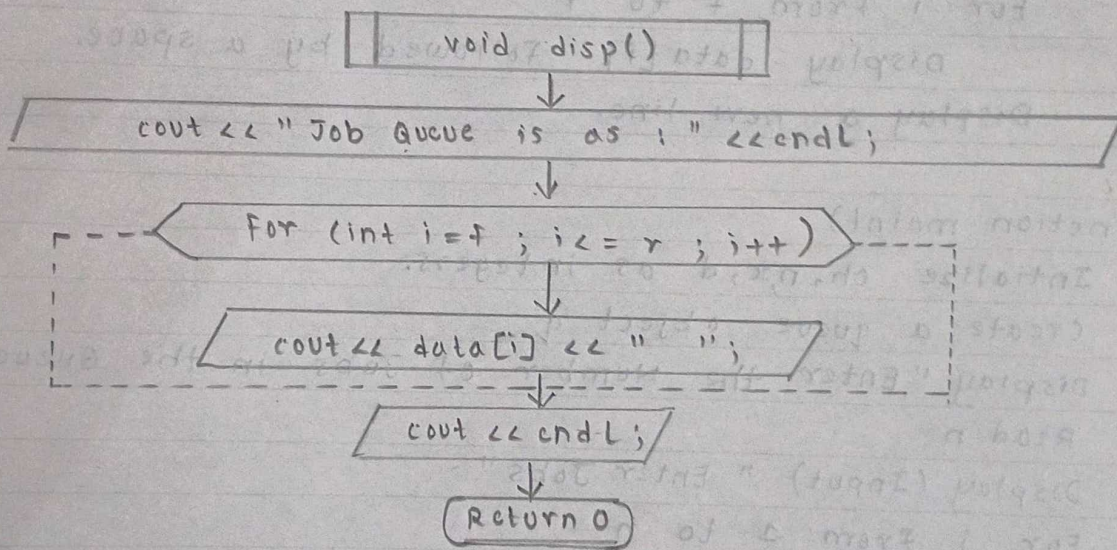 void disp()
cout << "Job Queue is as : " <<endl;
For (int i=f ; i<= r ; i++)
cout << data[i] << " ";
cout << endl;
Return 0